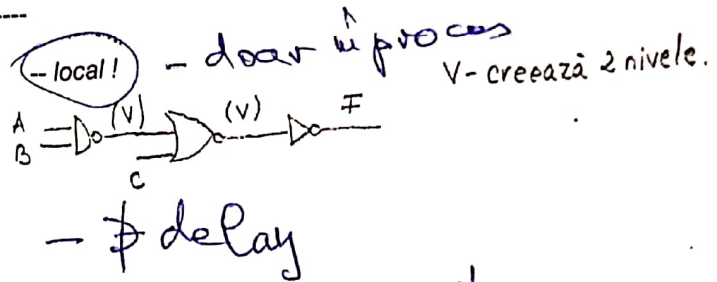 -- local! - doar în proces
V- creează 2 nivele.
A (V) (V) F
B
C
- ∄ delay